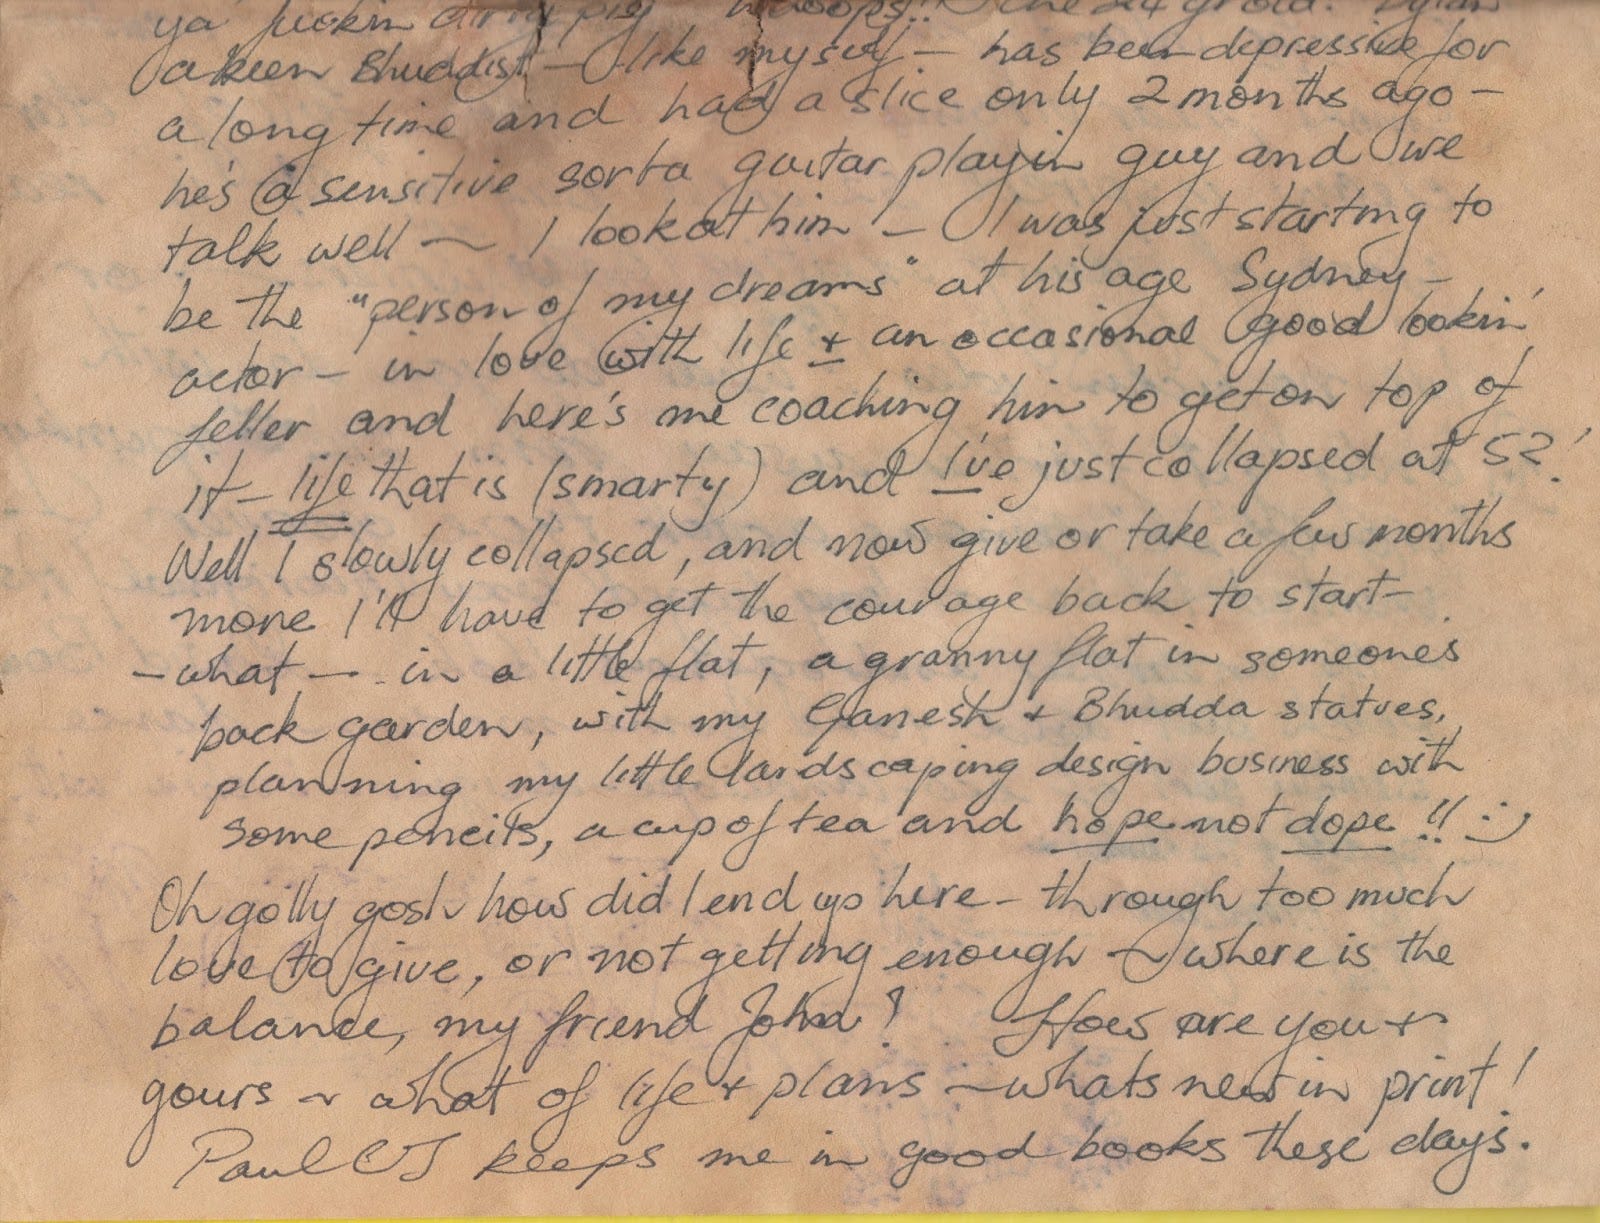 ya' fuckin dirty pig whoops!! - the 24 yr old. Dylan
a keen Bhuddist - like myself - has been depressive for
a long time and had a slice only 2 months ago -
he's a sensitive sorta guitar playin guy and we
talk well ~ I look at him - I was just starting to
be the "person of my dreams" at his age Sydney -
actor - in love with life + an occasional good lookin'
feller and here's me coaching him to get on top of
it - life that is (smarty) and I've just collapsed at 52!
Well I slowly collapsed, and now give or take a few months
more I'll have to get the courage back to start -
- what - in a little flat, a granny flat in someone's
back garden, with my Ganesh + Bhudda statues,
planning my little landscaping design business with
some pencils, a cup of tea and hope not dope !! :)
Oh golly gosh how did I end up here - through too much
love to give, or not getting enough ~ where is the
balance, my friend John? How are you +
yours ~ what of life + plans ~ whats new in print!
Paul keeps me in good books these days.